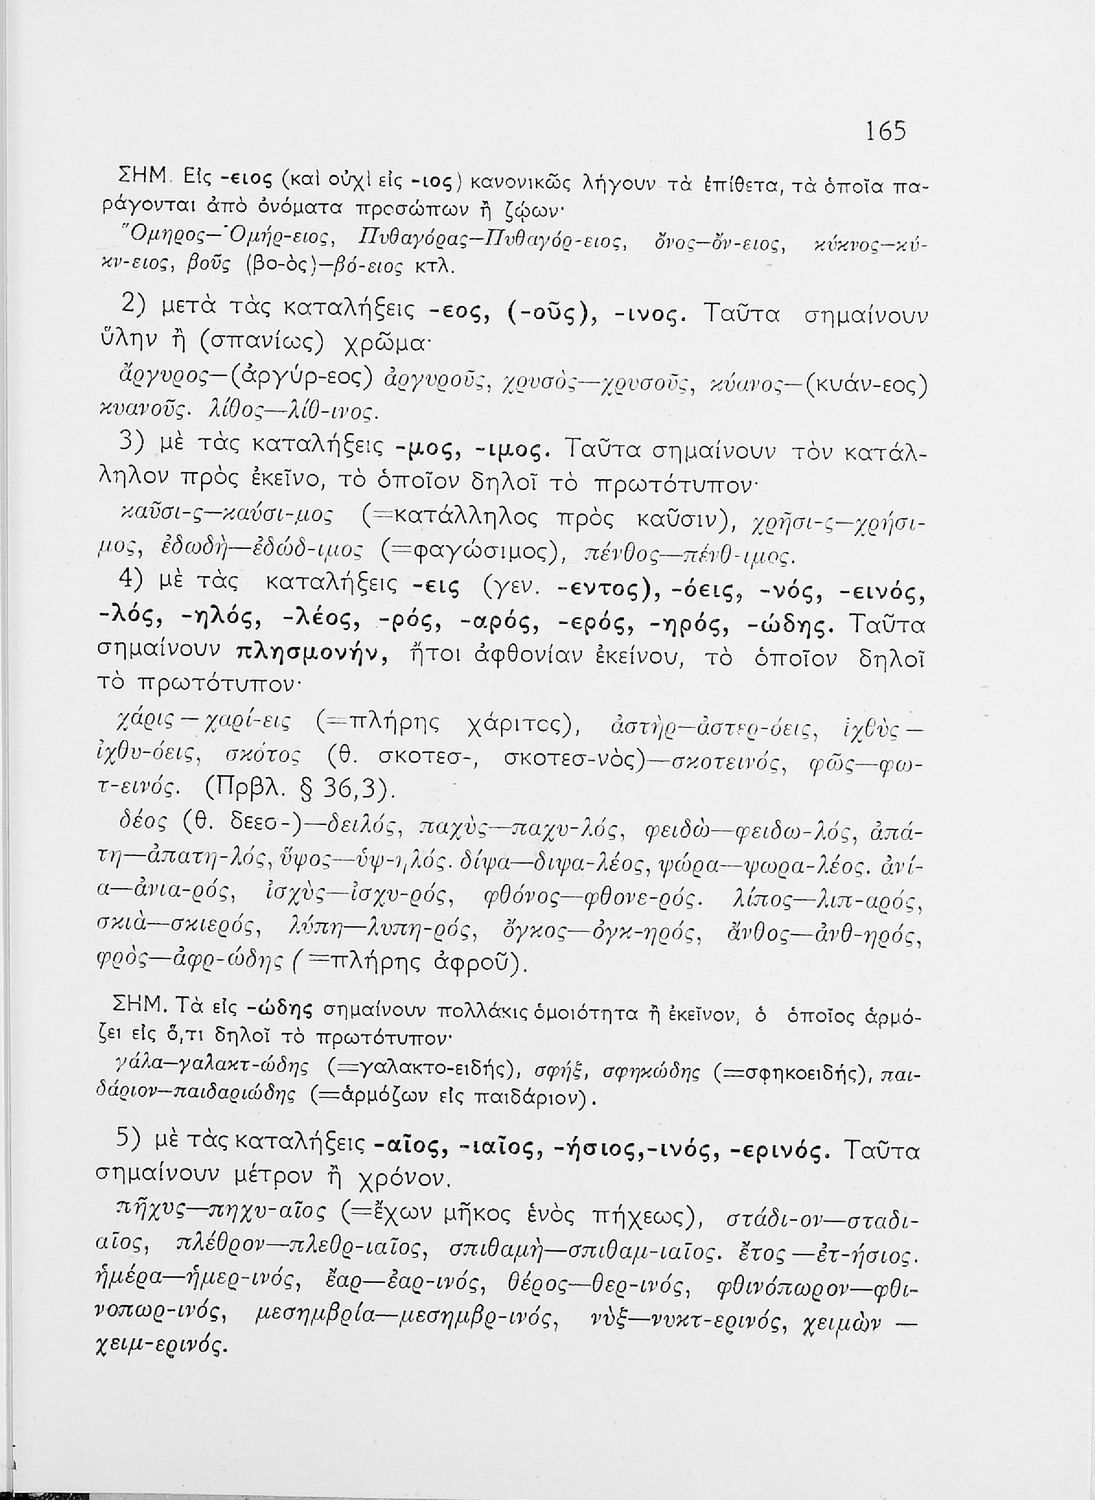 165
ΣΗΜ. Εἰς -ειος (καὶ οὐχὶ εἰς -ιος) κανονικῶς λήγουν τὰ ἐπίθετα, τὰ ὁποῖα πα-
ράγονται ἀπὸ ὀνόματα προσώπων ἢ ζῴων·
Ὅμηρος—Ὁμήρ-ειος, Πυθαγόρας—Πυθαγόρ-ειος, ὄνος—ὄν-ειος, κύκνος—κύ-
κν-ειος, βοῦς (βο-ὸς)—βό-ειος κτλ.
2) μετὰ τὰς καταλήξεις -εος, (-οῦς), -ινος. Ταῦτα σημαίνουν
ὕλην ἢ (σπανίως) χρῶμα·
ἄργυρος—(ἀργύρ-εος) ἀργυροῦς, χρυσὸς—χρυσοῦς, κύανος—(κυάν-εος)
κυανοῦς. λίθος—λίθ-ινος.
3) μὲ τὰς καταλήξεις -μος, -ιμος. Ταῦτα σημαίνουν τὸν κατάλ-
ληλον πρὸς ἐκεῖνο, τὸ ὁποῖον δηλοῖ τὸ πρωτότυπον·
καῦσι-ς—καύσι-μος (=κατάλληλος πρὸς καῦσιν), χρῆσι-ς—χρήσι-
μος, ἐδωδὴ—ἐδώδ-ιμος (=φαγώσιμος), πένθος—πένθ-ιμος.
4) μὲ τὰς καταλήξεις -εις (γεν. -εντος), -όεις, -νός, -εινός,
-λός, -ηλός, -λέος, -ρός, -αρός, -ερός, -ηρός, -ώδης. Ταῦτα
σημαίνουν πλησμονήν, ἤτοι ἀφθονίαν ἐκείνου, τὸ ὁποῖον δηλοῖ
τὸ πρωτότυπον·
χάρις — χαρί-εις (=πλήρης χάριτος), ἀστὴρ—ἀστερ-όεις, ἰχθὺς —
ἰχθυ-όεις, σκότος (θ. σκοτεσ-, σκοτεσ-νὸς)—σκοτεινός, φῶς—φω-
τ-εινός. (Πρβλ. § 36,3).
δέος (θ. δεεσ-)—δειλός, παχὺς—παχυ-λός, φειδὼ—φειδω-λός, ἀπά-
τη—ἀπατη-λός, ὕψος—ὑψ-ηλός. δίψα—διψα-λέος, ψώρα—ψωρα-λέος. ἀνί-
α—ἀνια-ρός, ἰσχὺς—ἰσχυ-ρός, φθόνος—φθονε-ρός. λίπος—λιπ-αρός,
σκιὰ—σκιερός, λύπη—λυπη-ρός, ὄγκος—ὀγκ-ηρός, ἄνθος—ἀνθ-ηρός,
φρὸς—ἀφρ-ώδης (=πλήρης ἀφροῦ).
ΣΗΜ. Τὰ εἰς -ώδης σημαίνουν πολλάκις ὁμοιότητα ἢ ἐκεῖνον, ὁ ὁποῖος ἁρμό-
ζει εἰς ὅ,τι δηλοῖ τὸ πρωτότυπον·
γάλα—γαλακτ-ώδης (=γαλακτο-ειδής), σφήξ, σφηκώδης (=σφηκοειδής), παι-
δάριον—παιδαριώδης (=ἁρμόζων εἰς παιδάριον).
5) μὲ τὰς καταλήξεις -αῖος, -ιαῖος, -ήσιος,-ινός, -ερινός. Ταῦτα
σημαίνουν μέτρον ἢ χρόνον.
πῆχυς—πηχυ-αῖος (=ἔχων μῆκος ἑνὸς πήχεως), στάδι-ον—σταδι-
αῖος, πλέθρον—πλεθρ-ιαῖος, σπιθαμὴ—σπιθαμ-ιαῖος. ἔτος—ἐτ-ήσιος.
ἡμέρα—ἡμερ-ινός, ἔαρ—ἐαρ-ινός, θέρος—θερ-ινός, φθινόπωρον—φθι-
νοπωρ-ινός, μεσημβρία—μεσημβρ-ινός, νὺξ—νυκτ-ερινός, χειμὼν —
χειμ-ερινός.